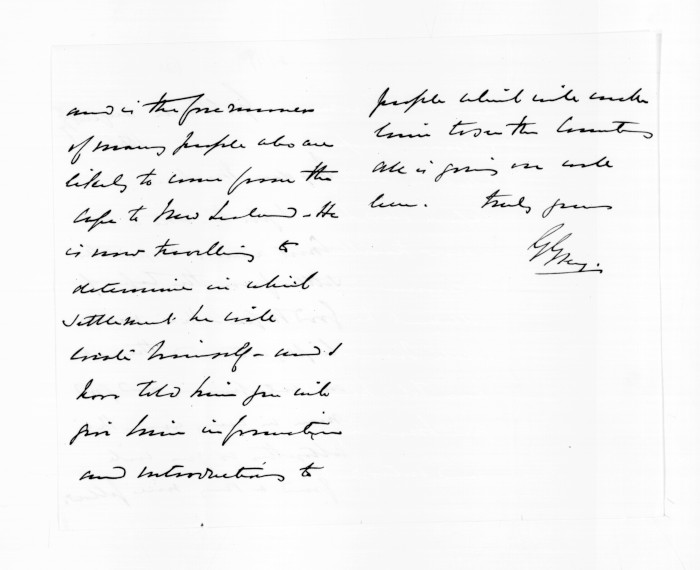 and is the forerunner
of many people who are
likely to come from the
Cape to New Zealand - He
is now travelling to
determine in which
settlement he will
locate himself - and I
have told him you will
give him information
and introductions to
people which will enable
him to see the Country
He is going on with
me. Truly yours
G Grey.